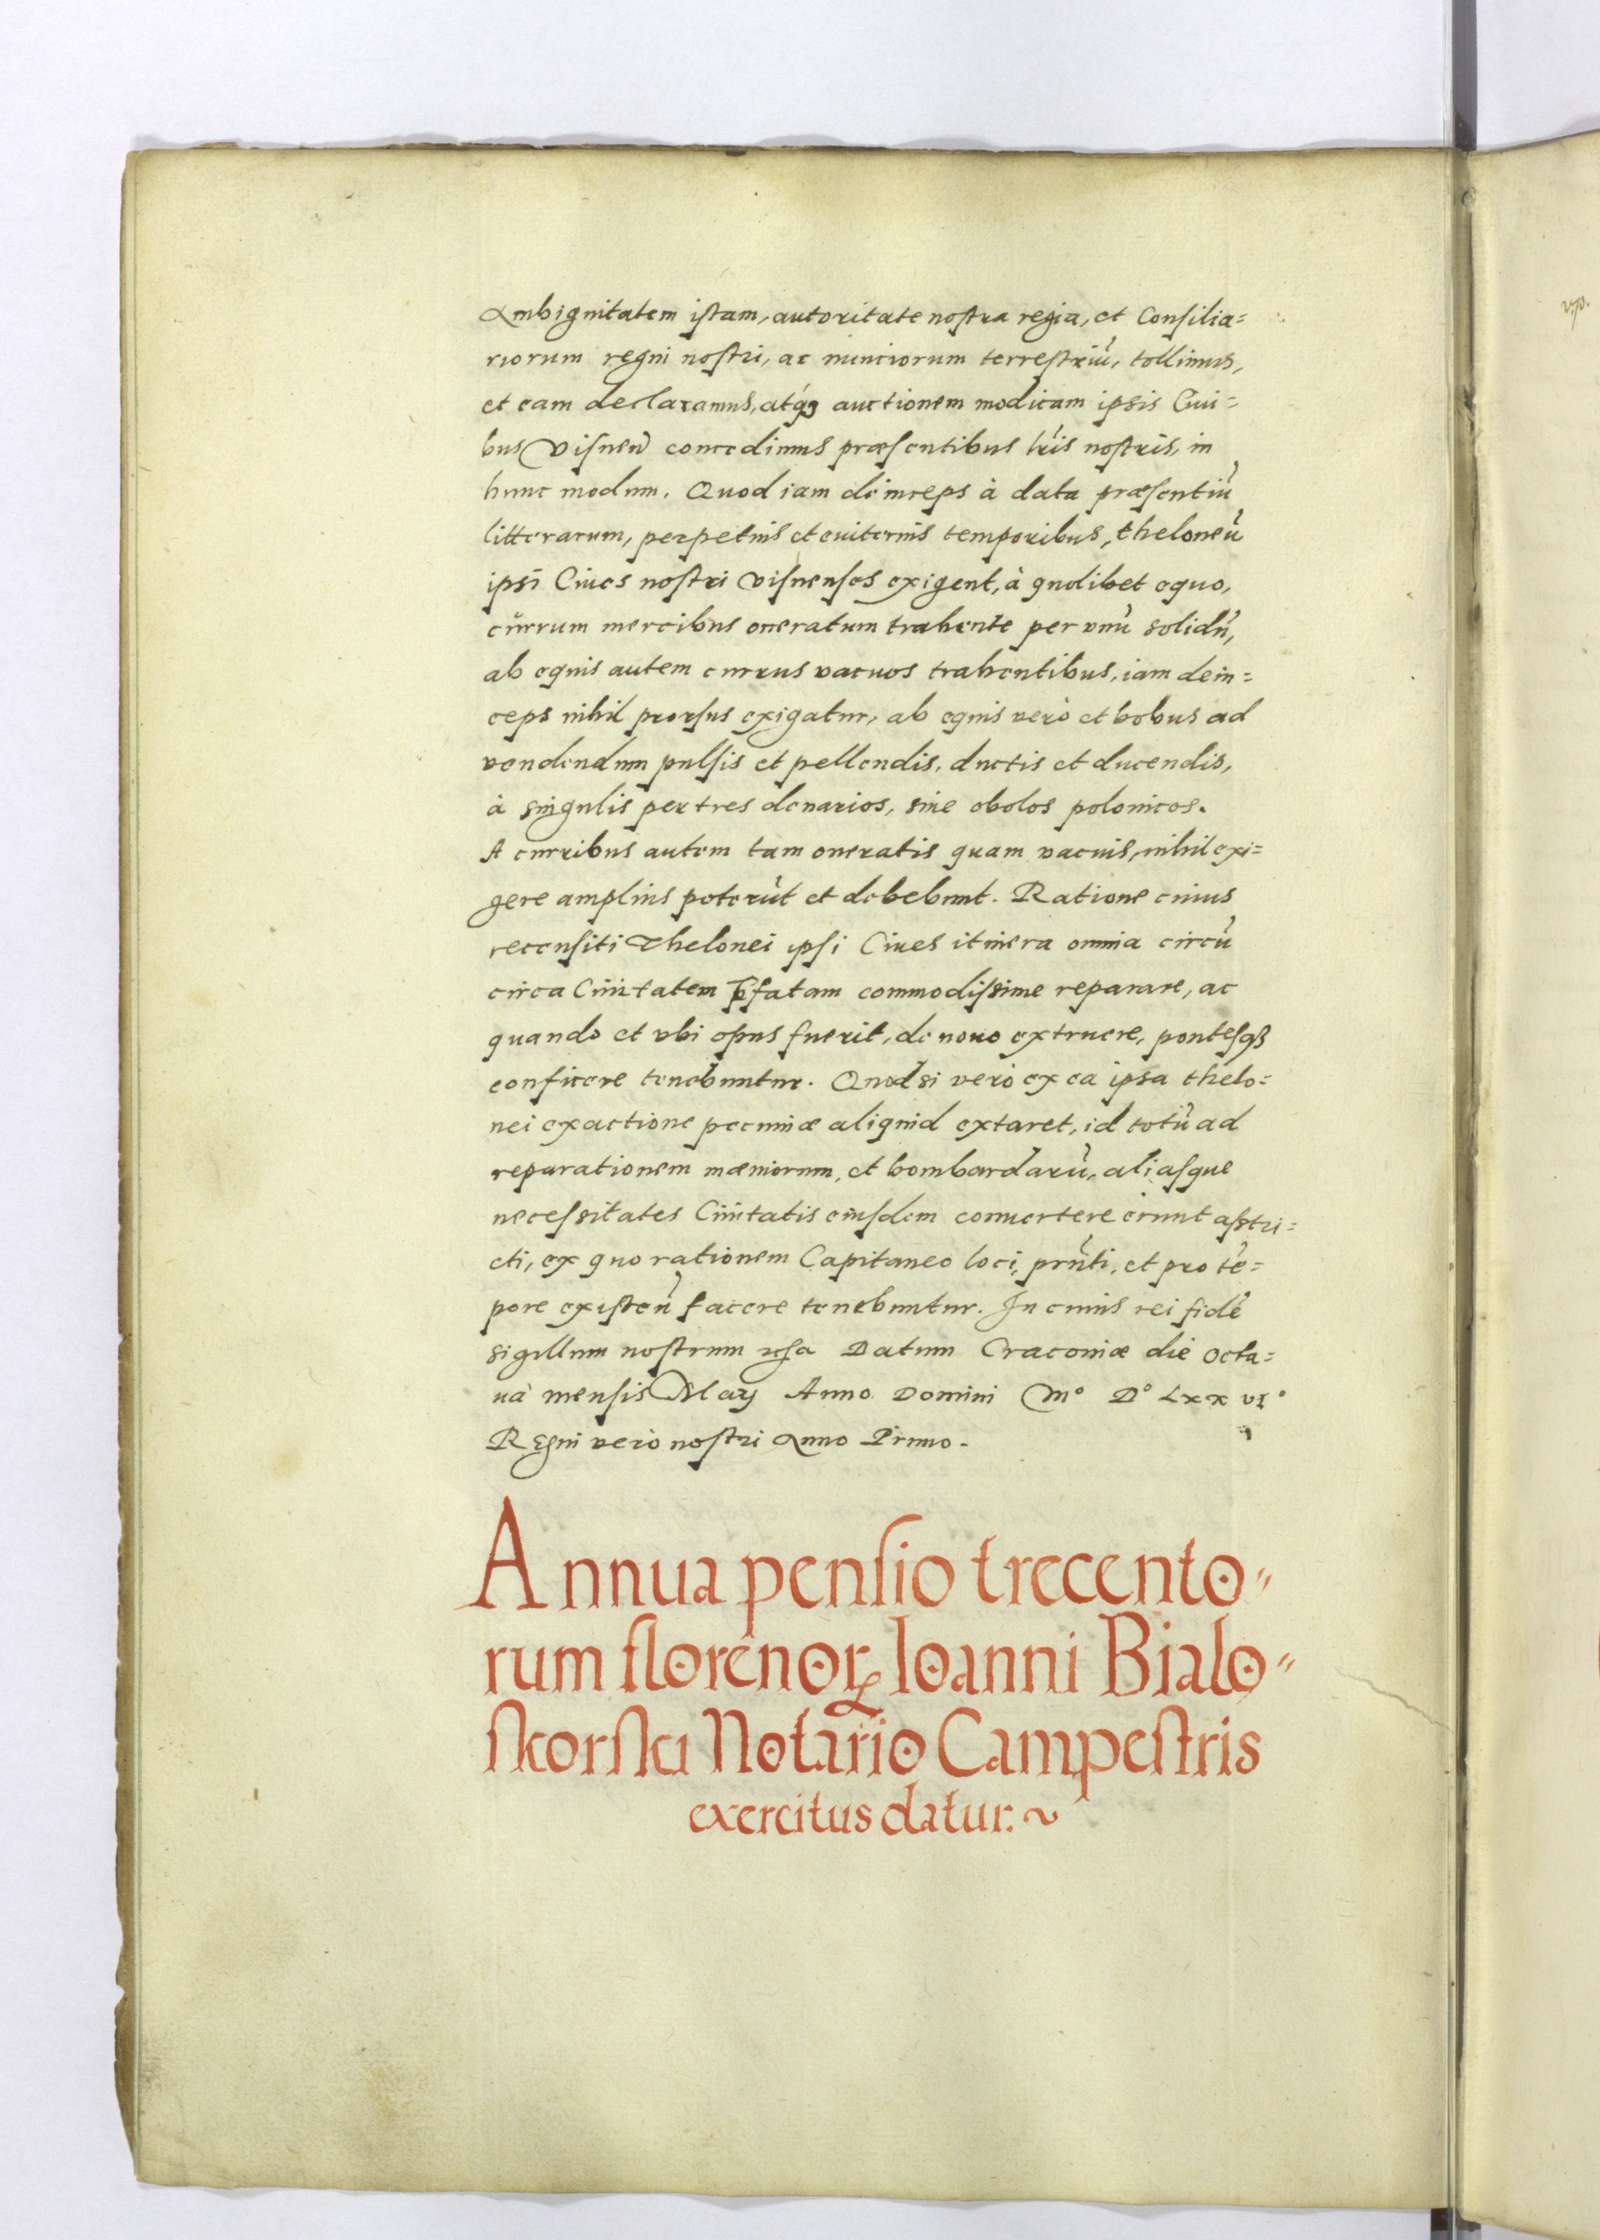 Ambiguitatem istam, autoritate nostra regia, et Consilia=
riorum regni nostri, ac nunciorum terrestriũ, tollimus,
et eam declaramus, atq3 auctionem modicam ipsis Ciui=
bus Visneñ concedimus præsentibus lr̃is nostris, in
hunc modum. Quod iam deinceps à data præsentiũ
litterarum, perpetuis et euiternis temporibus, theloneũ
ipsi Ciues nostri Visnenses exigent, à quolibet equo,
currum mercibus oneratum trahente per vnũ solidũ,
ab equis autem currus vacuos trahentibus, iam dein=
ceps nihil prorsus exigatur, ab equis verò et bobus ad
vendendum pulsis et pellendis, ductis et ducendis,
à singulis per tres denarios, siue obolos polonicos.
A curribus autem tam oneratis quam vacuis, nihil exi=
gere amplius poterũt et debebunt. Ratione cuius
recensiti Thelonei ipsi Ciues itinera omnia circũ
circa Ciuitatem p̃fatam commodissime reparare, ac
quando et vbi opus fuerit, de nouo extruere, pontesq3
conficere tenebuntur. Quod si verò ex ea ipsa thelo=
nei exactione pecuniæ aliquid extaret, id totũ ad
reparationem mæniorum, et bombardarũ, aliasque
necessitates Ciuitatis eiusdem conuertere erunt astri=
cti, ex quo rationem Capitaneo loci, prñti, et pro tẽ=
pore existeñ facere tenebuntur. In cuius rei fidẽ
sigillum nostrum Datum Cracouiæ die octa=
ua mensis Maij Anno Domini Mº Dº Lxx vıº
Regni verò nostri Anno Primo.
Annua pensio trecento=
rum florenorꝝ Ioanni Bialo=
skorski Notario Campestris
exercitus datur. ~